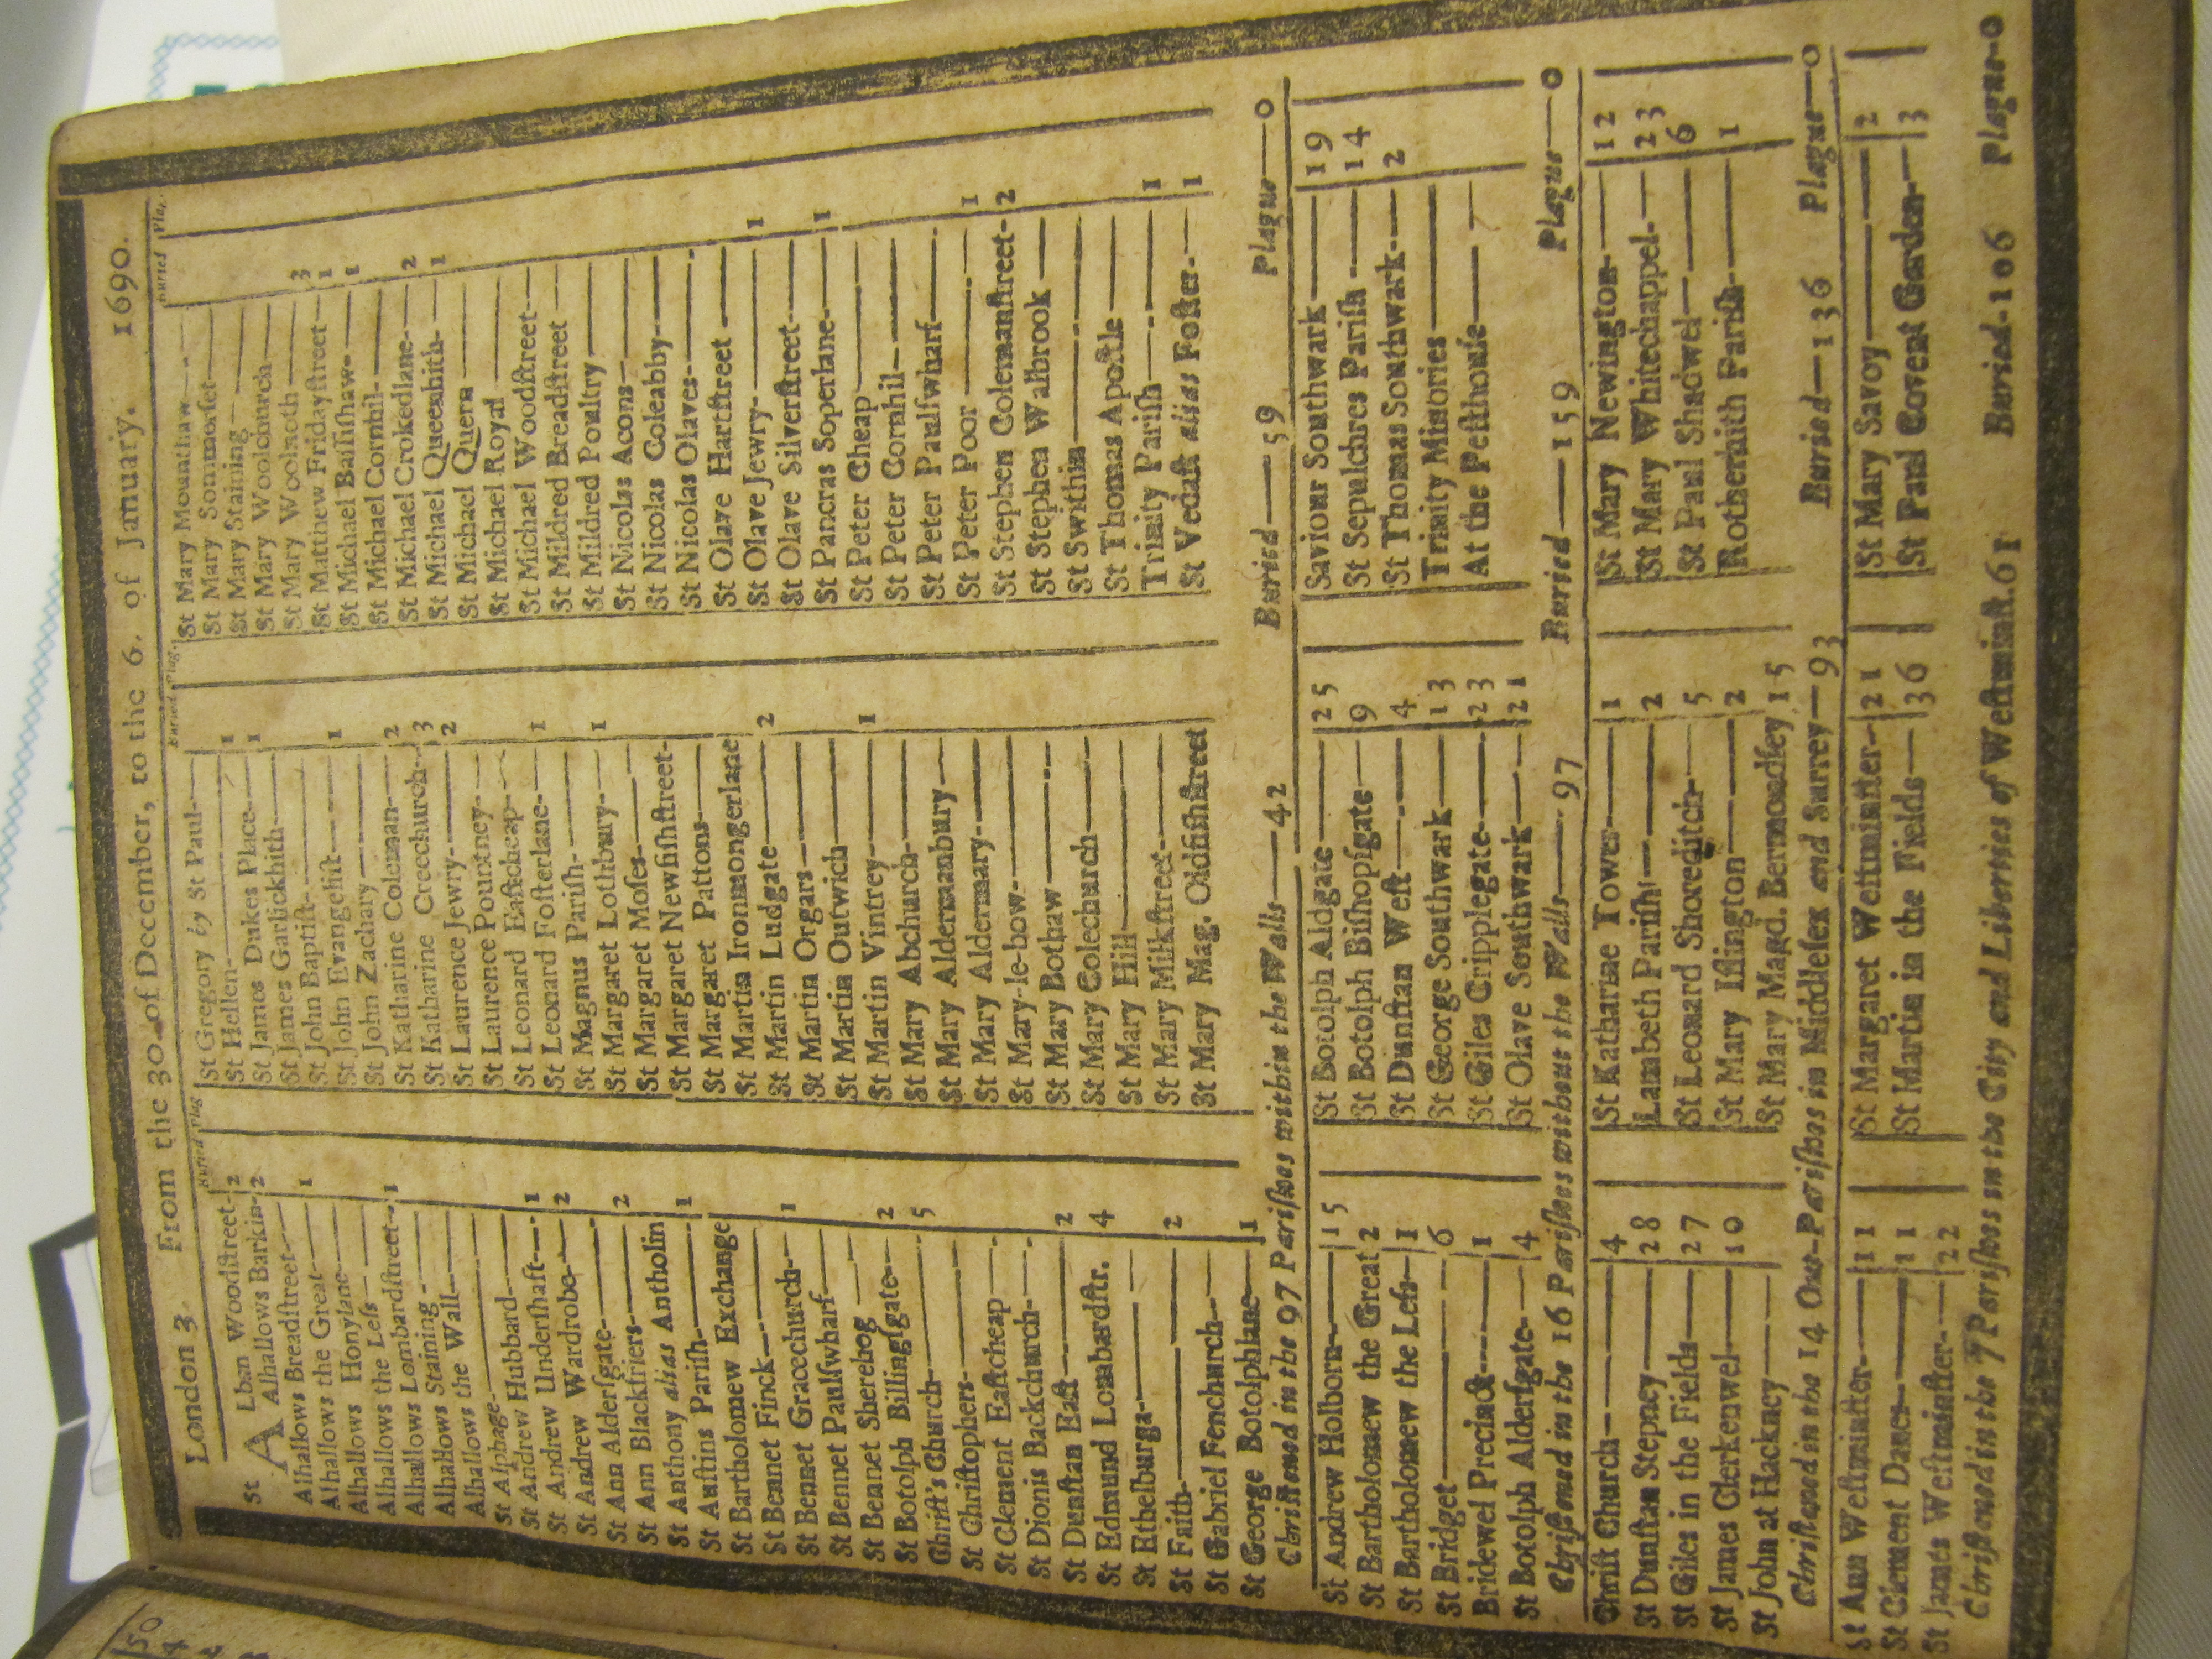 London 3. From the 30. of December, to the 6. of January. 1690.
Buried Plag
St ALban Woodſtreet- 2
Alhallows Barkin- 2
Alhallows Breadſtreet—
Alhallows the Great— 1
Alhallows Honylane—
Alhallows the Leſs —
Alhallows Lombardſtreet- 1
Alhallows Staining —
Alhallows the Wall—
St Alphage—
St Andrew Hubbard—
St Andrew Underſhaft— 1
St Andrew Wardrobe— 2
St Ann Alderſgate—
St Ann Blackfriers— 2
St Anthony alias Antholin
St Auſtins Pariſh— 1
St Bartholomew Exchange
St Bennet Finck—
St Bennet Gracechurch— 1
St Bennet Paulſwharf—
St Bennet Sherehog —
St Botolph Billingſgate— 2
Chriſt's Church— 5
St Chriſtophers—
St Clement Eaſtcheap—
St Dionis Backchurch—
St Dunſtan Eaſt— 2
St Edmund Lombardſtr. 4
St Ethelburga—
St Faith— 2
St Gabriel Fenchurch—
St George Botolphlane— 1
Buried Plag.
St Gregory by St Paul—
St Hellen— 1
St James Dukes Place— 1
St James Garlickhith—
St John Baptiſt—
St John Evangeliſt— 1
St John Zachary—
St Katharine Coleman— 2
St Katharine Creechurch- 3
St Laurence Jewry— 2
St Laurence Pountney—
St Leonard Eaſtcheap—
St Leonard Foſterlane— 1
St Magnus Pariſh—
St Margaret Lothbury— 1
St Margaret Moſes—
St Margaret Newfiſhſtreet-
St Margaret Pattons—
St Martin Ironmongerlane
St Martin Ludgate— 2
St Martin Orgars—
St Martin Outwich—
St Martin Vintrey— 1
St Mary Abchurch—
St Mary Aldermanbury—
St Mary Aldermary—
St Mary-le-bow—
St Mary Bothaw—
St Mary Colechurch—
St Mary Hill—
St Mary Milkſtreet—
St Mary Mag. Oldfiſhſtreet
Buried Pla.
St Mary Mounthaw—
St Mary Sommerſet—
St Mary Staining—
St Mary Woolchurch—
St Mary Woolnoth — 3
St Matthew Fridayſtreet— 1
St Michael Baſſiſhaw— 1
St Michael Cornhil—
St Michael Crokedlane— 2
St Michael Queenhith— 1
St Michael Quern —
St Michael Royal —
St Michael Woodſtreet—
St Mildred Breadſtreet —
St Mildred Poultry—
St Nicolas Acons—
St Nicolas Coleabby—
St Nicolas Olaves—
St Olave Hartſtreet —
St Olave Jewry— 1
St Olave Silverſtreet—
St Pancras Soperlane— 1
St Peter Cheap—
St Peter Cornhil—
St Peter Paulſwharf—
St Peter Poor — 1
St Stephen Colemanſtreet- 2
St Stephen Walbrook —
St Swithin—
St Thomas Apoſtle —
Trinity Pariſh— 1
St Vedaſt alias Foſter— 1
Chriſtned in the 97 Pariſhes within the Walls—42 Buried—59 Plague—0
St Andrew Holborn— 15
St Bartholomew the Great 2
St Bartholomew the Leſs— 1
St Bridget— 6
Bridewel Precinct— 1
St Botolph Alderſgate— 4
St Botolph Aldgate — 25
St Botolph Biſhopſgate— 9
St Dunſtan Weſt— 4
St George Southwark— 13
St Giles Cripplegate— 23
St Olave Southwark— 21
Saviour Southwark — 19
St Sepulchres Pariſh — 14
St Thomas Southwark— 2
Trinity Minories —
At the Peſthouſe—
Chriſtned in the 16 Pariſhes without the Walls—97 Buried—159 Plague—0
Chriſt Church— 4
St Dunſtan Stepney— 28
St Giles in the Fields— 27
St James Clerkenwel— 10
St John at Hackney—
St Katharine Tower— 1
Lambeth Pariſh— 2
St Leonard Shoreditch— 5
St Mary Iſlington— 2
St Mary Magd. Bermondſey 15
St Mary Newington— 12
St Mary Whitechappel— 23
St Paul Shadwel— 6
Rotherhith Pariſh— 1
Chriſtned in the 14 Out-Pariſhes in Middleſex and Surrey—93 Buried—136 Plague—0
St Ann Weſtminſter— 11
St Clement Danes— 11
St James Weſtminſter— 22
St Margaret Weſtminſter- 21
St Martin in the Fields— 36
St Mary Savoy— 2
St Paul Covent Garden— 3
Chriſtned in the 7 Pariſhes in the City and Liberties of Weſtminſt.61 Buried-106 Plague-0